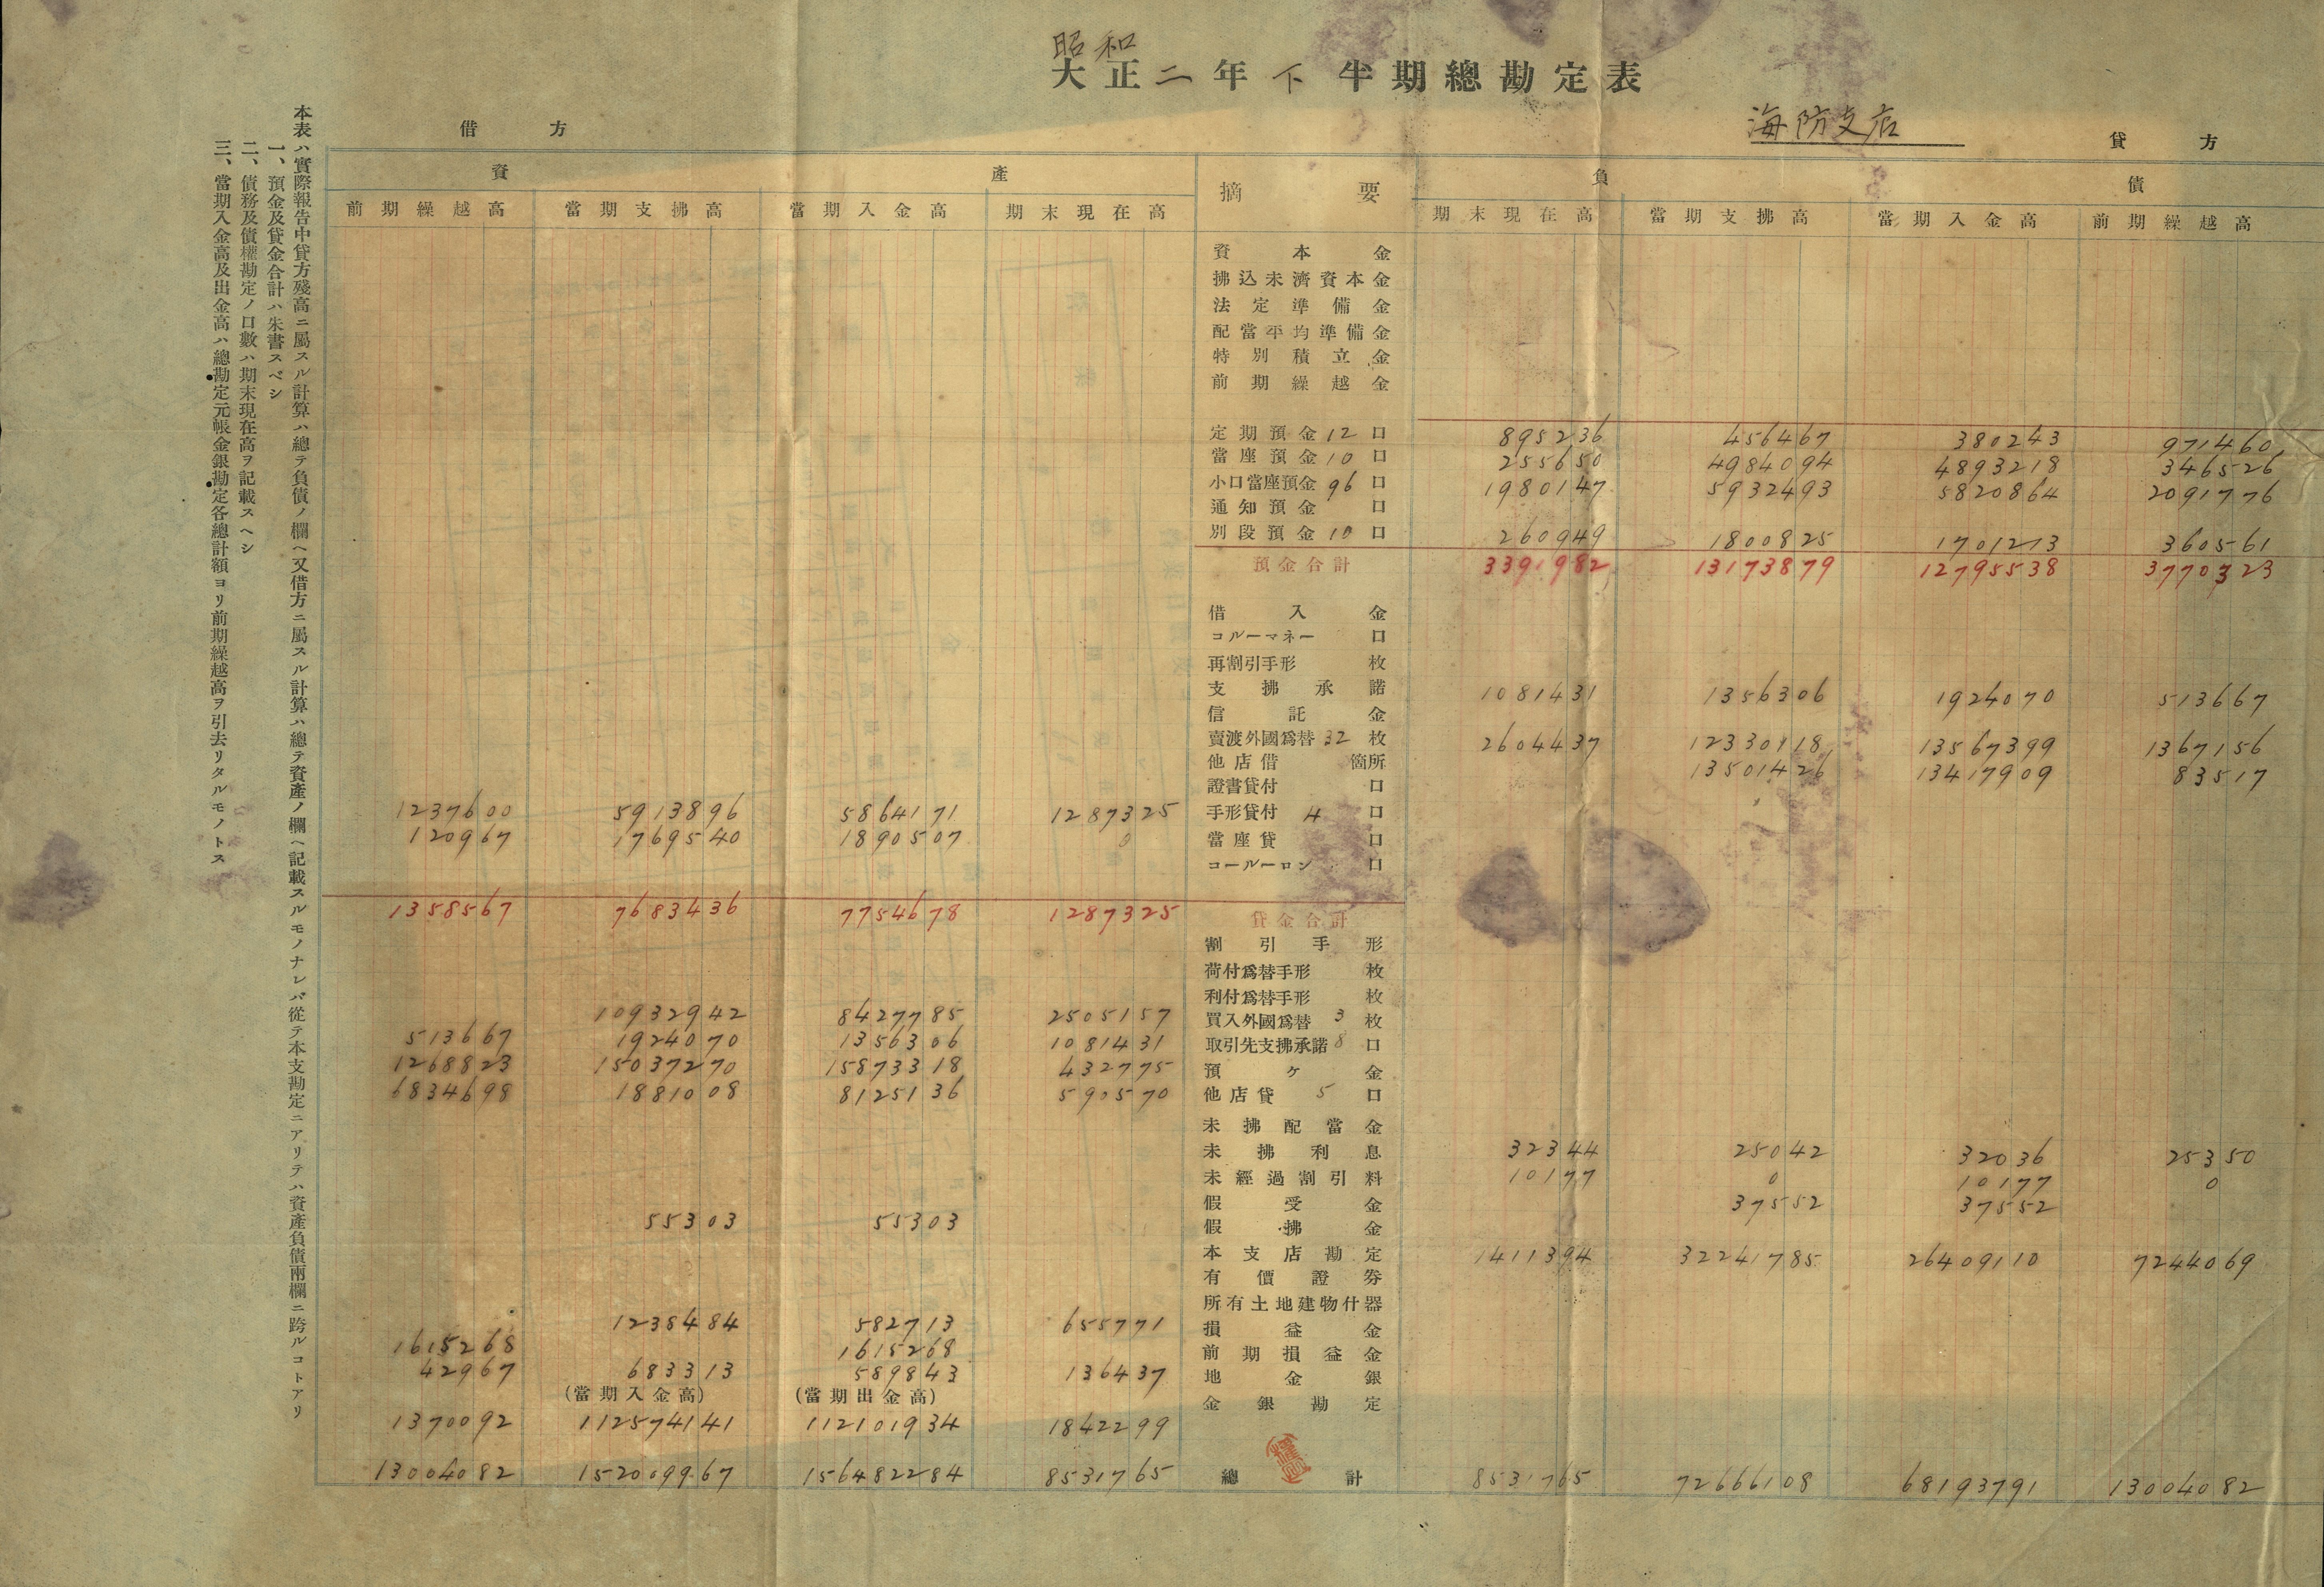 昭和
大正二年下半期總勘定表
海防支店
借方 貸方
資產 摘要 負債
前期繰越高 當期支拂高 當期入金高 期末現在高 期末現在高 當期支拂高 當期入金高 前期繰越高
資本金
拂込未濟資本金
法定準備金
配當平均準備金
特別積立金
前期繰越金
定期預金 12 口 895236 456467 380243 971460
當座預金 10 口 255650 4984094 4893218 346526
小口當座預金 96 口 1980147 5932493 5820864 2091776
通知預金 口
別段預金 10 口 260949 1800825 1701213 360561
預金合計 3391982 13173879 12795538 3770323
借入金
コルーマネー 口
再割引手形 枚
支拂承諾 1081431 1356306 1924070 513667
信託金
賣渡外國爲替 32 枚 2604437 12330118 13567399 1367156
他店借 箇所 13501426 13417909 83517
證書貸付 口
1237600 5913896 5864171 1287325 手形貸付 4 口
120967 1769540 1890507 0 當座貸 口
コールーロン 口
1358567 7683436 7754678 1287325 貸金合計
割引手形
荷付爲替手形 枚
利付爲替手形 枚
10932942 8427785 2505157 買入外國爲替 3 枚
513667 1924070 1356306 1081431 取引先支拂承諾 8 口
1268823 15037270 15873318 432775 預ケ金
6834698 1881008 8125136 590570 他店貸 5 口
未拂配當金
未拂利息 32344 25042 32036 25350
未經過割引料 10177 0 10177 0
假受金 37552 37552
55303 55303 假拂金
本支店勘定 1411394 32241785 26409110 7244069
有價證券
所有土地建物什器
1238484 582713 655771 損益金
1615268 1615268 前期損益金
42967 683313 589843 136437 地金銀
(當期入金高) (當期出金高)
1370092 112574141 112101934 1842299 金銀勘定
13004082 152009967 156482284 8531765 總計 8531765 72666108 68193791 13004082
本表ハ實際報告中貸方殘高ニ屬スル計算ハ總テ負債ノ欄ヘ又借方ニ屬スル計算ハ總テ資產ノ欄ヘ記載スルモノナレバ從テ本支勘定ニアリテハ資產負債兩欄ニ跨ルコトアリ
一、預金及貸金合計ハ朱書スベシ
二、債務及債權勘定ノ口數ハ期末現在高ヲ記載スヘシ
三、當期入金高及出金高ハ總勘定元帳金銀勘定各總計額ヨリ前期繰越高ヲ引去リタルモノトス